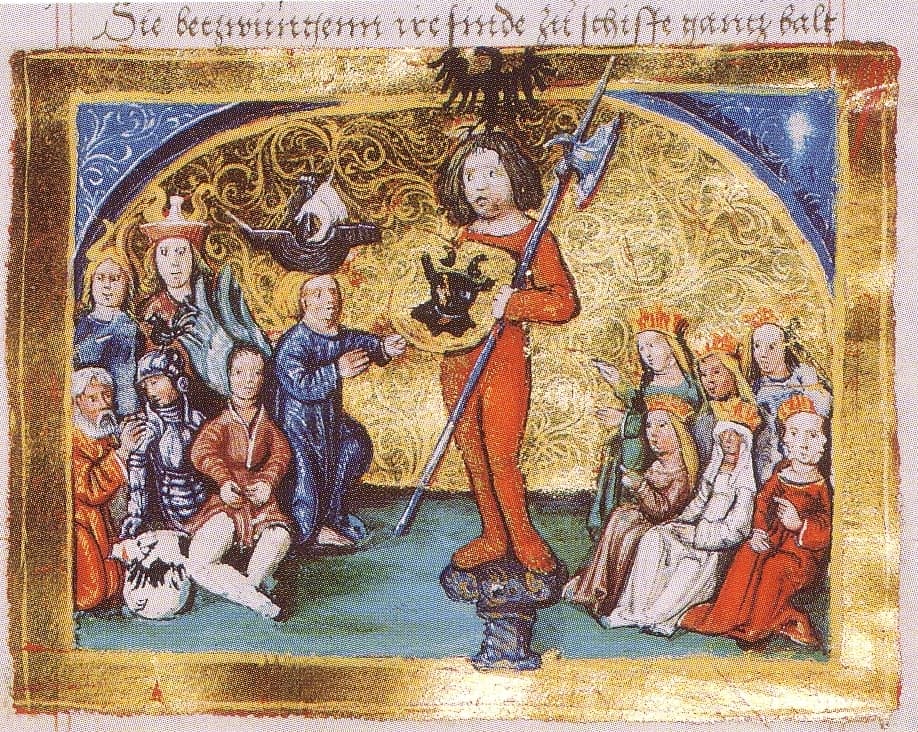 Sie betzwüngenn ire finde zü schiffe gantz balt